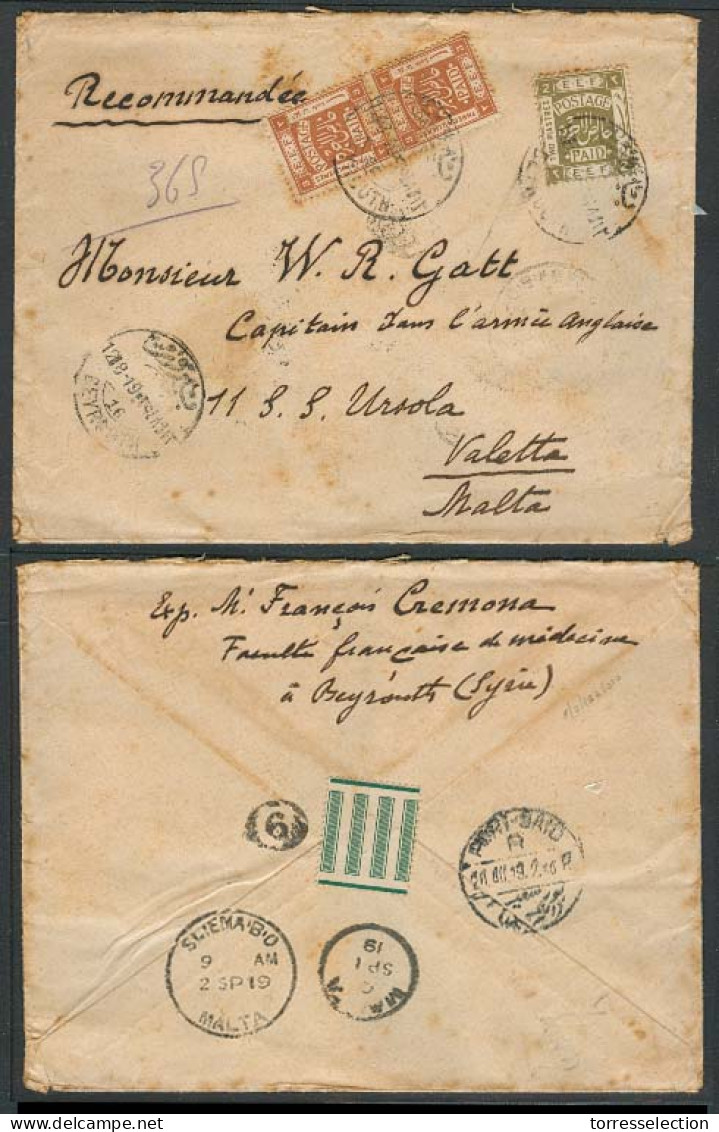 Recommandée
365
E.E.F.
POSTAGE
PAID
E.E.F.
POSTAGE
PAID
TWO PIASTRES
E.E.F.
Monsieur W. R. Gatt
Capitain dans l'armée Anglaise
11 S. S. Ursola
Valetta
Malta
BEYROUTH
Exp. Mr. François Cremona
Faculté française de médecine
à Beyrouth (Syrie)
6
PORT-SAID
R
SLIEMA·B·O
9 AM
2 SP 19
MALTA
MALTA
SP 1
19
torresselection
https://www.torresselection.com